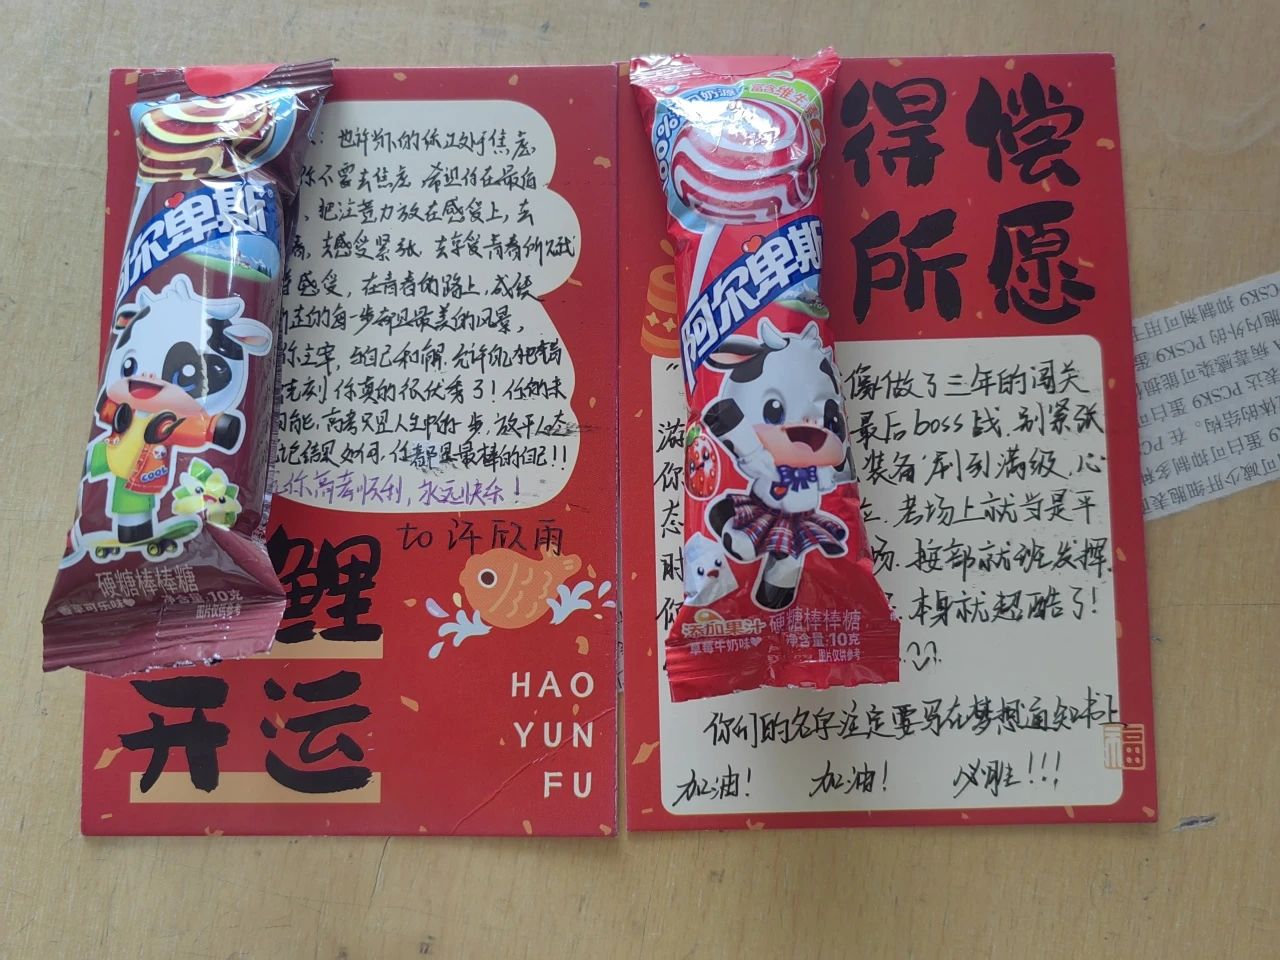 也许现在的你正处于焦虑
你不要去焦虑 希望你在最后
把注意力放在感受上,去
去感受紧张,去享受青春所
感受,在青春的路上,成绩
走的每一步都是最美的风景,
你主宰,与自己和解,允许自己
你真的很优秀了!你的未
可能,高考只是人生中的一步,放平心态
结果如何,你都是最棒的自己!!
你高考顺利,永远快乐!
to 许欣雨
鲤
开运
HAO
YUN
FU
阿尔卑斯
硬糖棒棒糖
香草可乐味
净含量:10克
图片仅供参考
得偿
所愿
像做了三年的闯关
游
最后boss战,别紧张
你
装备刷到满级,心
态
考场上就当是平
时
场,按部就班发挥.
你
本身就超酷了!
你们的名字注定要写在梦想通知书上
加油! 加油! 必胜!!!
福
100%
奶源
富含维生
阿尔卑斯
添加果汁
硬糖棒棒糖
草莓牛奶味
净含量:10克
图片仅供参考
COOL